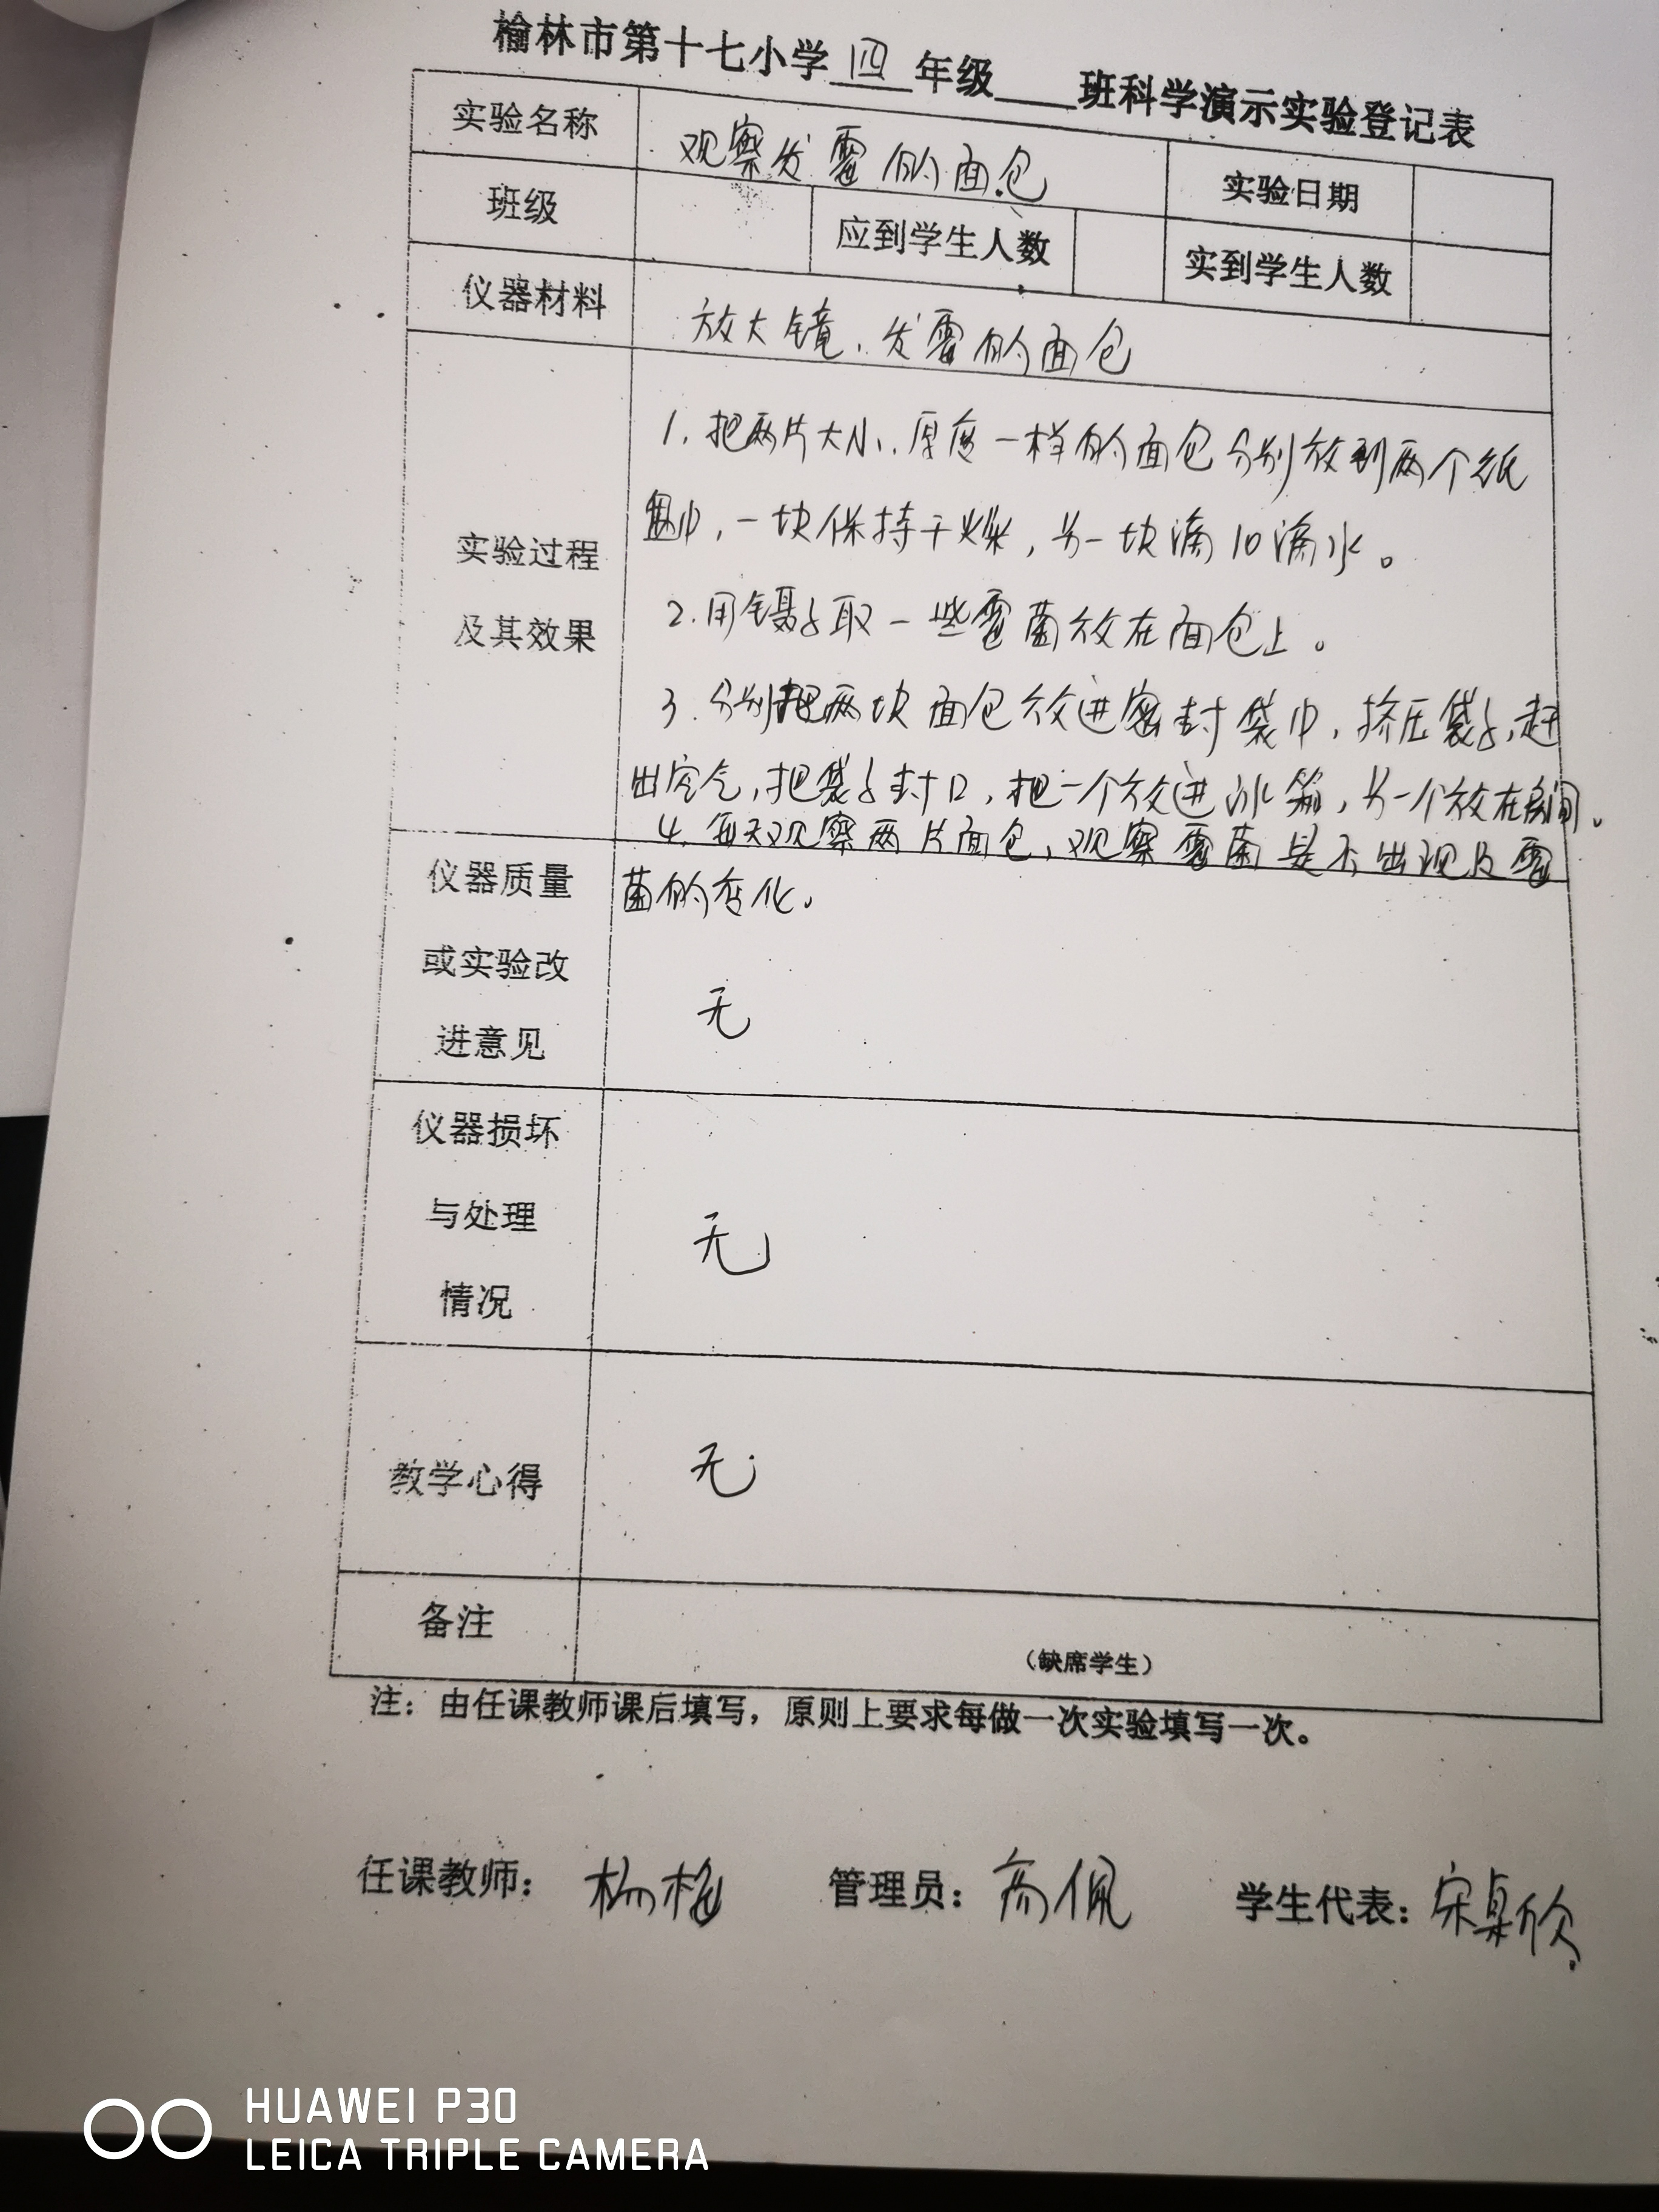 榆林市第十七小学 四 年级____班科学演示实验登记表
实验名称 观察发霉的面包 实验日期
班级 应到学生人数 实到学生人数
仪器材料 放大镜、发霉的面包
实验过程
及其效果
1. 把两片大小、厚度一样的面包分别放到两个纸
盘中，一块保持干燥，另一块滴10滴水。
2. 用镊子取一些霉菌放在面包上。
3. 分别把两块面包放进密封袋中，挤压袋子，赶
出空气，把袋子封口，把一个放进冰箱，另一个放在房间。
4. 每天观察两片面包，观察霉菌是否出现及霉
菌的变化。
仪器质量
或实验改
进意见
无
仪器损坏
与处理
情况
无
教学心得 无
备注 （缺席学生）
注：由任课教师课后填写，原则上要求每做一次实验填写一次。
任课教师： 杨梅 管理员： 高佩 学生代表： 宋卓欣
HUAWEI P30
LEICA TRIPLE CAMERA